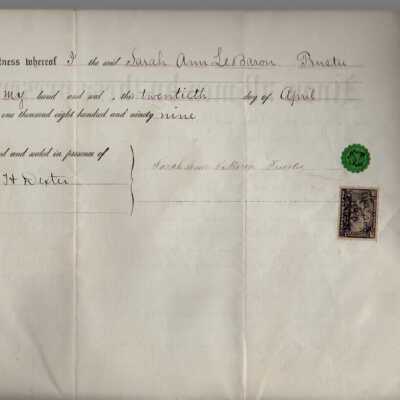 tness whereof I the said Sarah Ann LeBaron Trustee
my hand and seal, this twentieth day of April
one thousand eight hundred and ninety nine
ed and sealed in presence of
Sarah Ann LeBaron Trustee
H Dexter